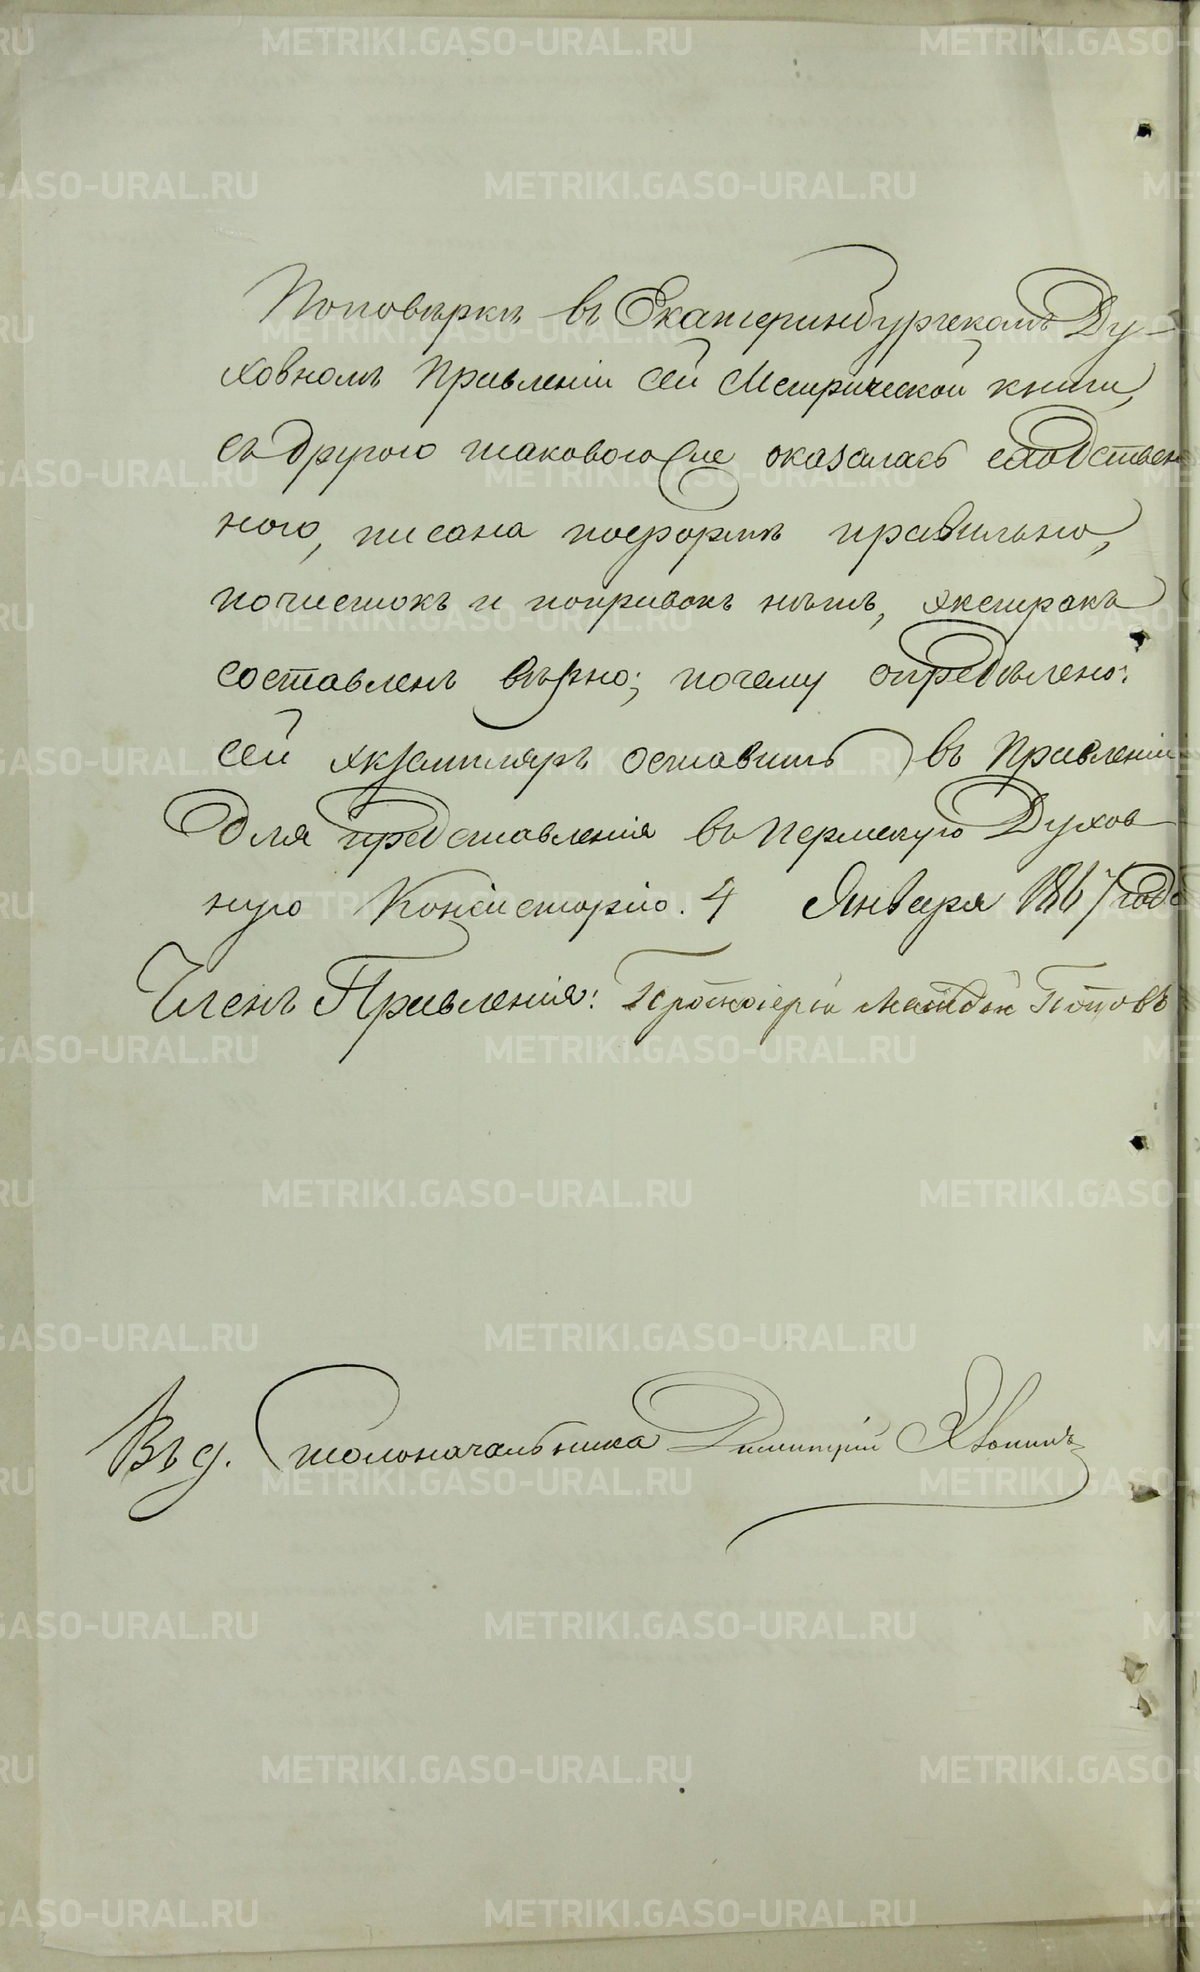 Поповѣркѣ въ Екатеринбургскомъ Ду-
ховномъ Правленіи сей Метрической книги,
съ другою таковою оказалась сходствен
ною, писана поформѣ правильно,
почистокъ и поправокъ нѣтъ, экстракъ
составленъ вѣрно; почему опредѣлено:
сей экземпляръ оставить въ Правленіи
для представленія въ Пермскую Духов
ную Консисторію. 4 Января 1867 года
Членъ Правленія: Протоіерей Попов
Въ д. Столоначальника Димитрій